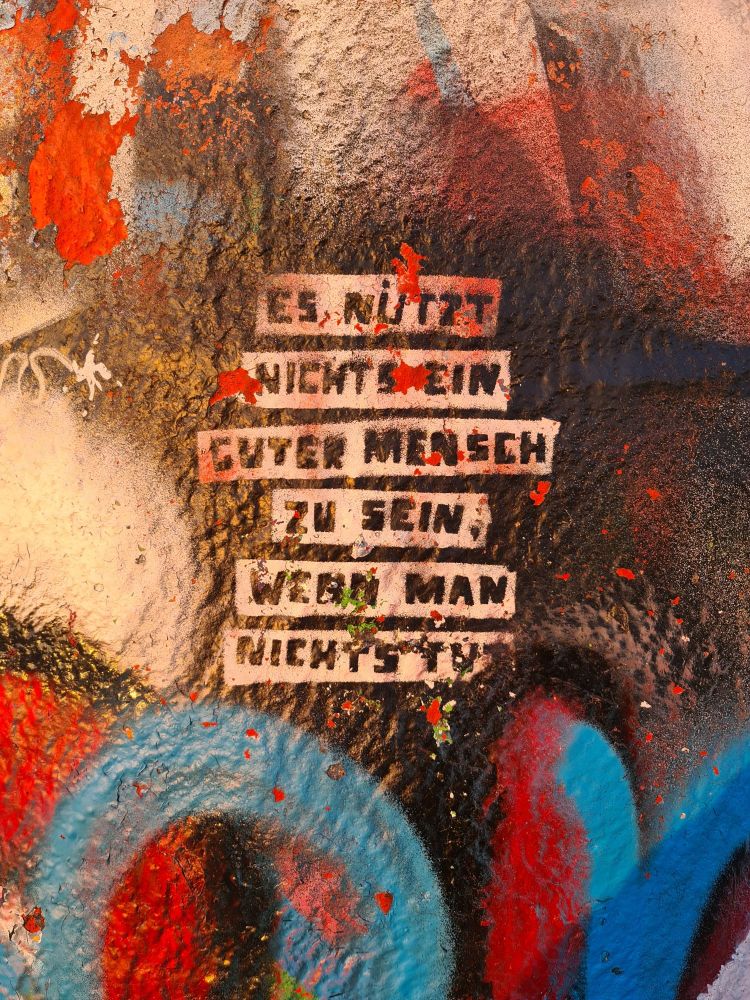 ES NÜTZT
NICHTS EIN
GUTER MENSCH
ZU SEIN,
WENN MAN
NICHTS TUT